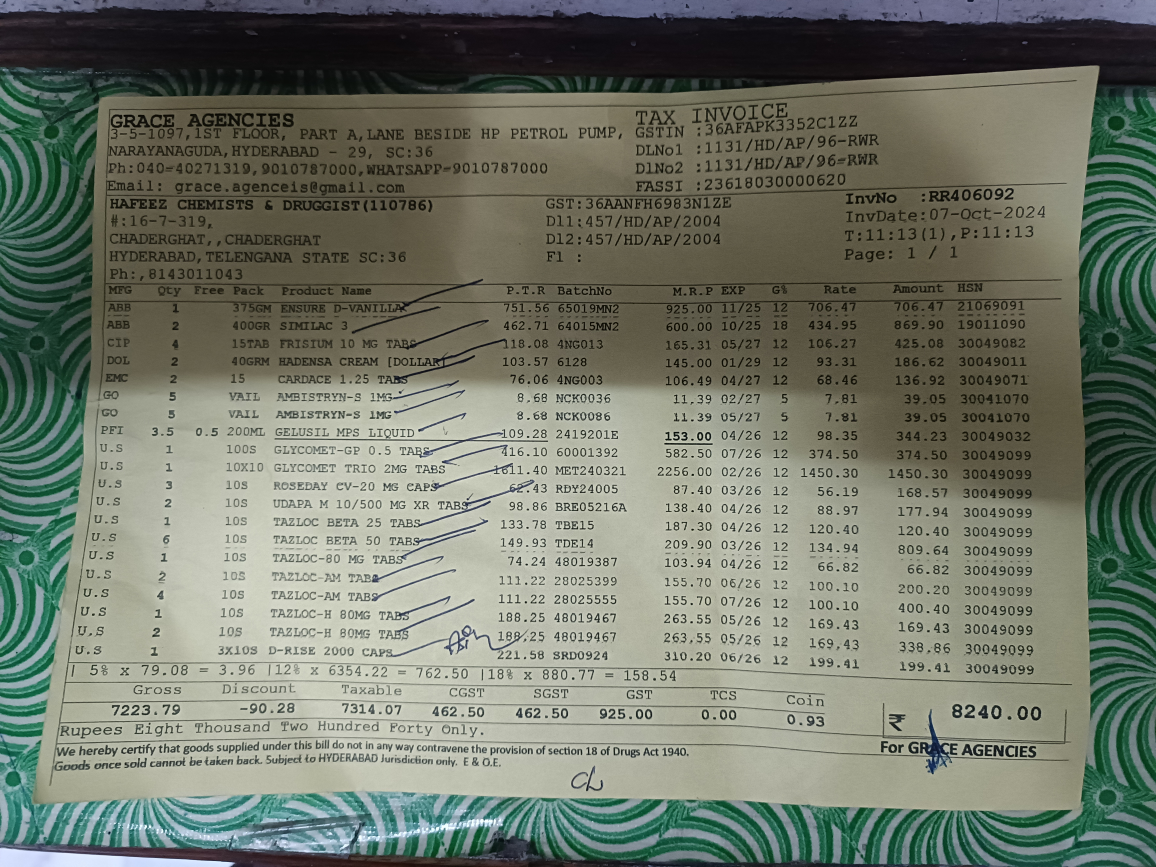 GRACE AGENCIES
3-5-1097,1ST FLOOR, PART A,LANE BESIDE HP PETROL PUMP,
NARAYANAGUDA,HYDERABAD - 29, SC:36
Ph:040=40271319,9010787000,WHATSAPP=9010787000
Email: grace.agenceis@gmail.com
TAX INVOICE
GSTIN :36AFAPK3352C1ZZ
DLNo1 :1131/HD/AP/96-RWR
DlNo2 :1131/HD/AP/96-RWR
FASSI :23618030000620
HAFEEZ CHEMISTS & DRUGGIST(110786)
#:16-7-319,
CHADERGHAT,,CHADERGHAT
HYDERABAD,TELENGANA STATE SC:36
Ph:,8143011043
GST:36AANFH6983N1ZE
Dl1:457/HD/AP/2004
Dl2:457/HD/AP/2004
Fl :
InvNo :RR406092
InvDate:07-Oct-2024
T:11:13(1),P:11:13
Page: 1 / 1
MFG Qty Free Pack Product Name P.T.R BatchNo M.R.P EXP G% Rate Amount HSN
ABB 1 375GM ENSURE D-VANILLA 751.56 65019MN2 925.00 11/25 12 706.47 706.47 21069091
ABB 2 400GR SIMILAC 3 462.71 64015MN2 600.00 10/25 18 434.95 869.90 19011090
CIP 4 15TAB FRISIUM 10 MG TABS 118.08 4NG013 165.31 05/27 12 106.27 425.08 30049082
DOL 2 40GRM HADENSA CREAM [DOLLAR] 103.57 6128 145.00 01/29 12 93.31 186.62 30049011
EMC 2 15 CARDACE 1.25 TABS 76.06 4NG003 106.49 04/27 12 68.46 136.92 30049071
GO 5 VAIL AMBISTRYN-S 1MG 8.68 NCK0036 11.39 02/27 5 7.81 39.05 30041070
GO 5 VAIL AMBISTRYN-S 1MG 8.68 NCK0086 11.39 05/27 5 7.81 39.05 30041070
PFI 3.5 0.5 200ML GELUSIL MPS LIQUID 109.28 2419201E 153.00 04/26 12 98.35 344.23 30049032
U.S 1 100S GLYCOMET-GP 0.5 TABS 416.10 60001392 582.50 07/26 12 374.50 374.50 30049099
U.S 1 10X10 GLYCOMET TRIO 2MG TABS 1611.40 MET240321 2256.00 02/26 12 1450.30 1450.30 30049099
U.S 3 10S ROSEDAY CV-20 MG CAPS 62.43 RDY24005 87.40 03/26 12 56.19 168.57 30049099
U.S 2 10S UDAPA M 10/500 MG XR TABS 98.86 BRE05216A 138.40 04/26 12 88.97 177.94 30049099
U.S 1 10S TAZLOC BETA 25 TABS 133.78 TBE15 187.30 04/26 12 120.40 120.40 30049099
U.S 6 10S TAZLOC BETA 50 TABS 149.93 TDE14 209.90 03/26 12 134.94 809.64 30049099
U.S 1 10S TAZLOC-80 MG TABS 74.24 48019387 103.94 04/26 12 66.82 66.82 30049099
U.S 2 10S TAZLOC-AM TABS 111.22 28025399 155.70 06/26 12 100.10 200.20 30049099
U.S 4 10S TAZLOC-AM TABS 111.22 28025555 155.70 07/26 12 100.10 400.40 30049099
U.S 1 10S TAZLOC-H 80MG TABS 188.25 48019467 263.55 05/26 12 169.43 169.43 30049099
U.S 2 10S TAZLOC-H 80MG TABS 188.25 48019467 263.55 05/26 12 169.43 338.86 30049099
U.S 1 3X10S D-RISE 2000 CAPS 221.58 SRD0924 310.20 06/26 12 199.41 199.41 30049099
| 5% x 79.08 = 3.96 |12% x 6354.22 = 762.50 |18% x 880.77 = 158.54
Gross Discount Taxable CGST SGST GST TCS Coin
7223.79 -90.28 7314.07 462.50 462.50 925.00 0.00 0.93 ₹ 8240.00
Rupees Eight Thousand Two Hundred Forty Only.
We hereby certify that goods supplied under this bill do not in any way contravene the provision of section 18 of Drugs Act 1940.
Goods once sold cannot be taken back. Subject to HYDERABAD Jurisdiction only. E & O.E.
For GRACE AGENCIES